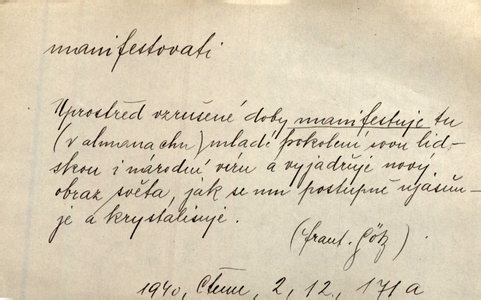 manifestovati
Uprostřed vzrušené doby manifestuje tu
(v almanachu) mladé pokolení svou lid-
skou i národní víru a vyjadřuje nový
obraz světa, jak se mu postupně ujasňu-
je a krystalisuje.
(Frant. Götz)
1940, Čteme, 2, 12., 171 a